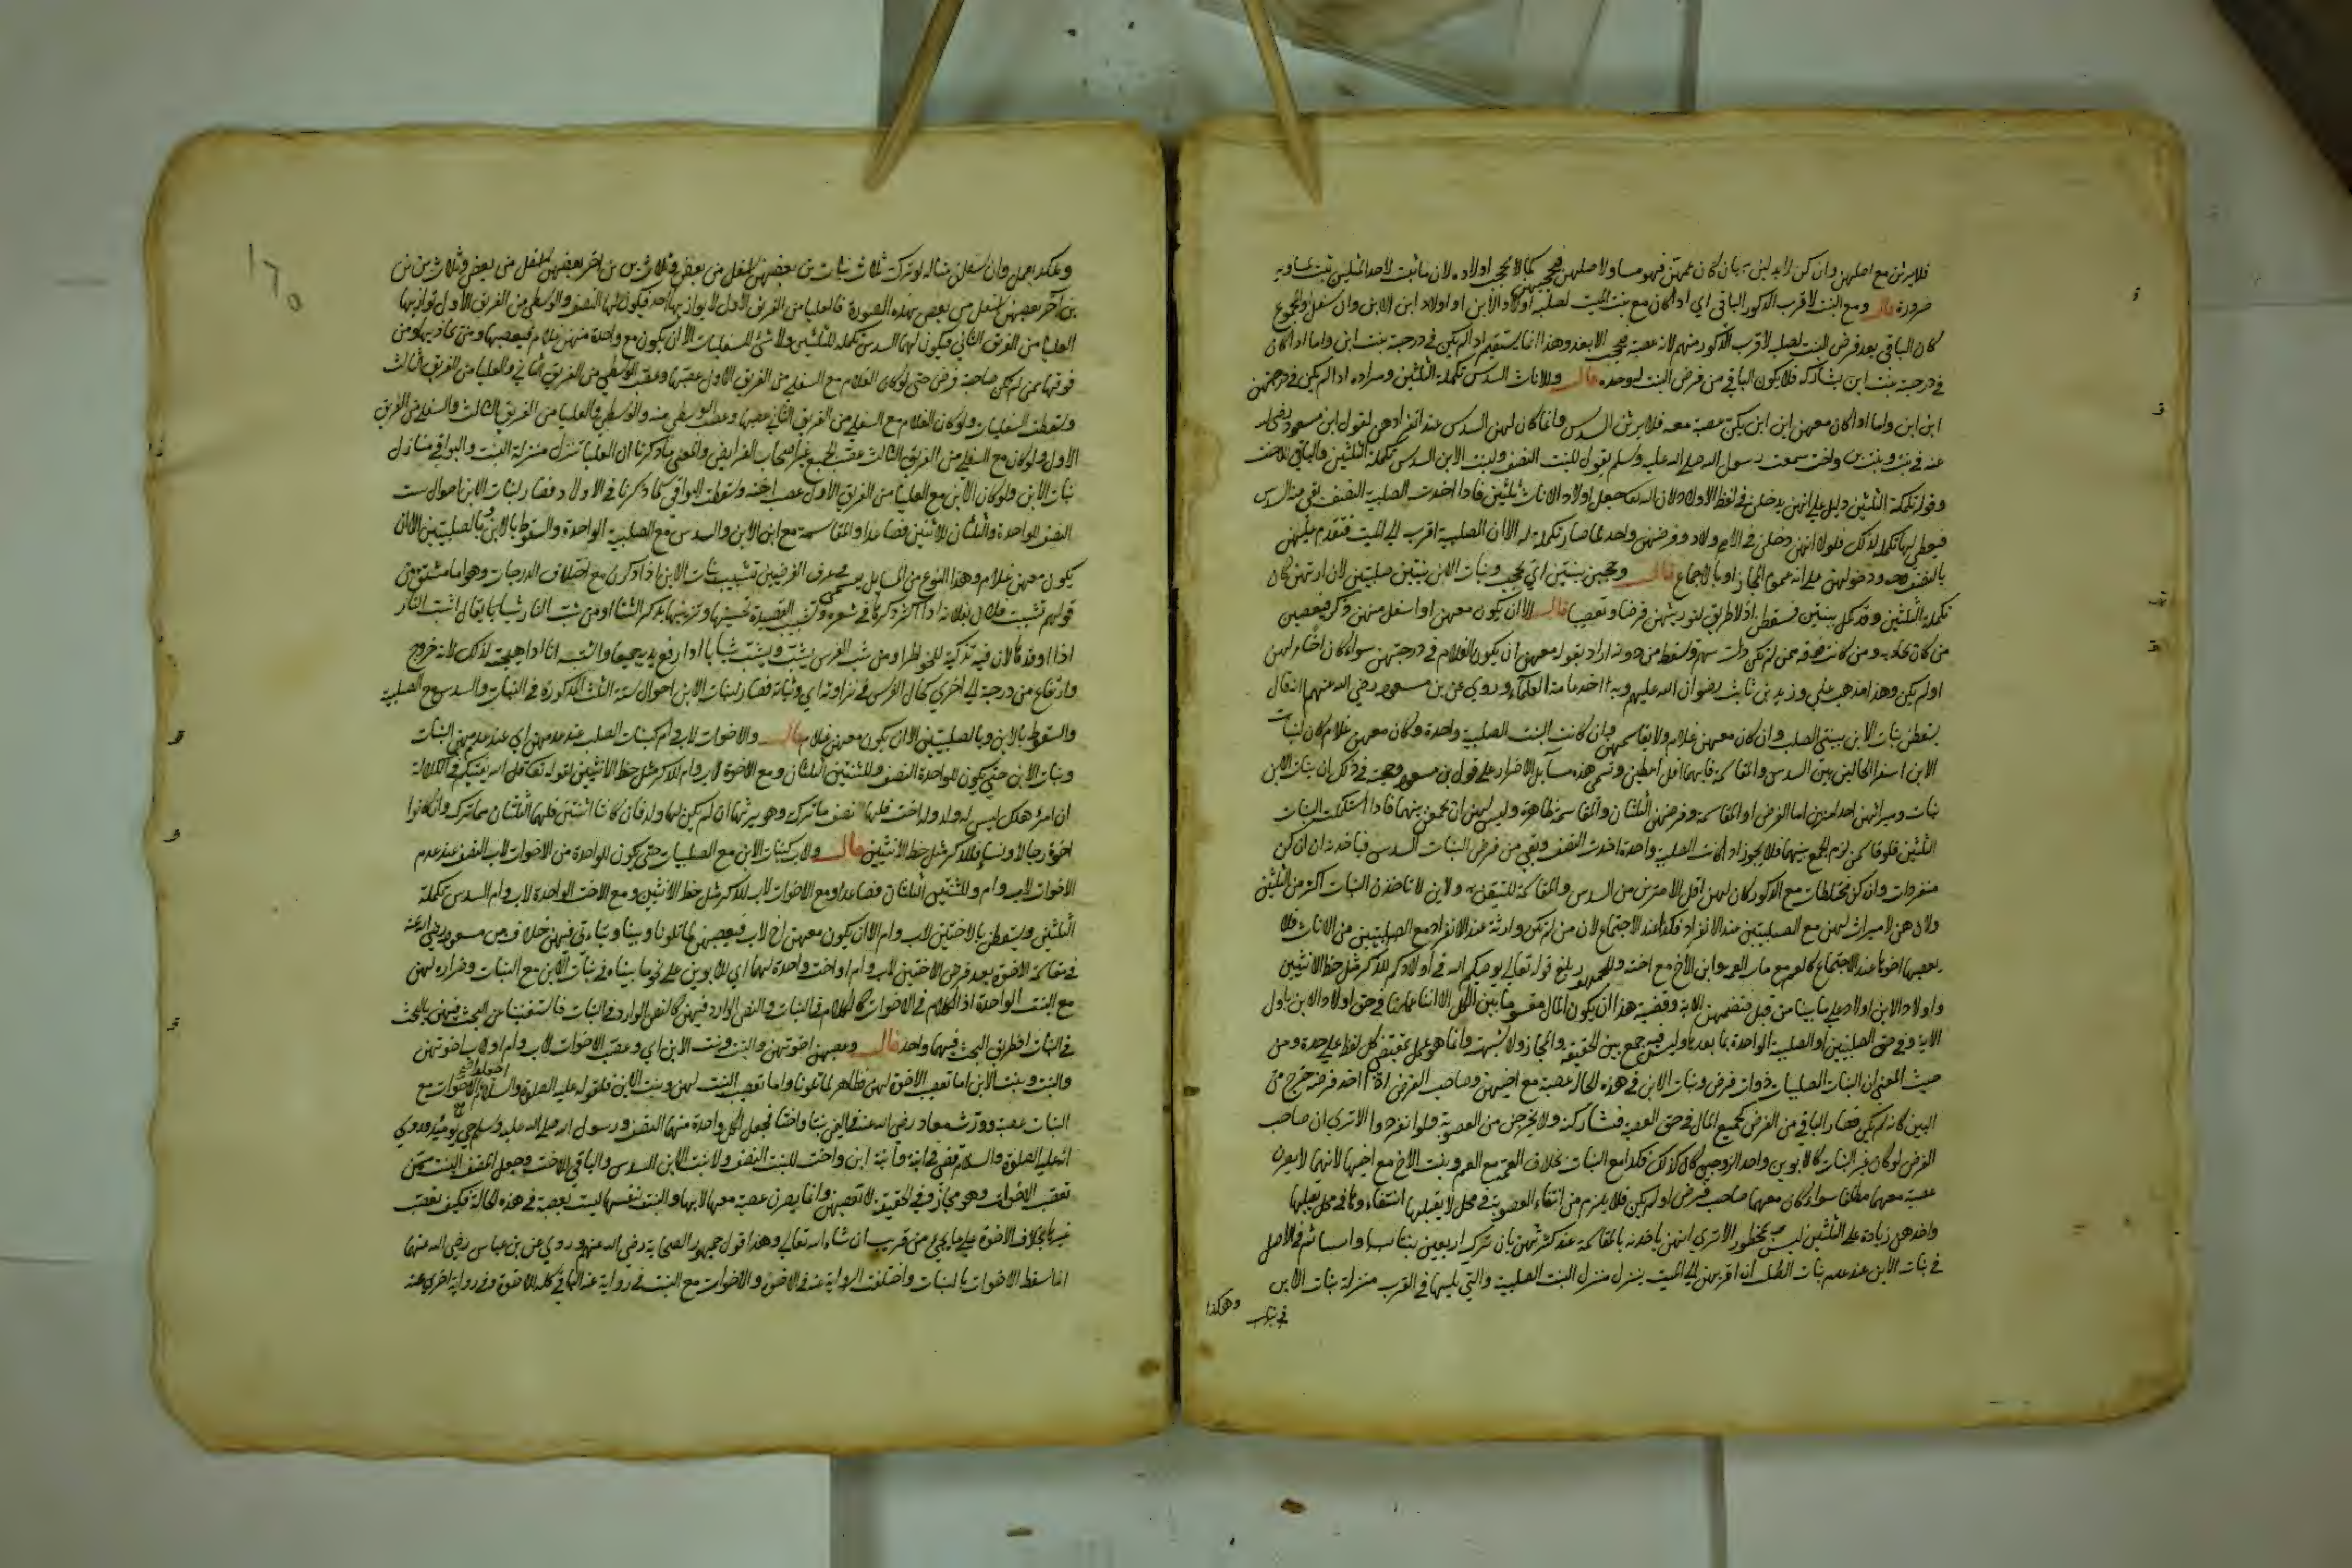 فلا يرثن مع اصلهن وان كن لا يدلين به بان كان عمهن فهو مساو لاصلهن فيحجبهن كما لا يحجب اولاده لان ما ثبت لاحد المثلين ثبت لمساويه
ضرورة قال ومع البنت لاقرب الذكور الباقي اي اذا كان مع بنت الميت لصلبه اولاد الابن او اولاد ابن الابن وان سفل والمجموع
كان الباقي بعد فرض البنت لصلب لاقرب الذكور منهم لانه عصبة فيحجب الابعد وهذا انما يستقيم اذا لم يكن في درجته بنت ابن واما اذا كان
في درجته بنت ابن يشاركه فلا يكون الباقي من فرض البنت له وحده قال وللاناث السدس تكملة الثلثين ومراده اذا لم يكن في درجتهن
ابن ابن واما اذا كان معهن ابن ابن يكن عصبة معه فلا يرثن السدس وانما كان لهن السدس عند انفرادهن لقول ابن مسعود رضي الله
عنه في بنت وبنت ابن واخت سمعت رسول الله صلى الله عليه وسلم يقول للبنت النصف ولبنت الابن السدس تكملة الثلثين والباقي للاخت
وقوله تكملة الثلثين دليل على انهن يدخلن في لفظ الاولاد لان الله تعالى جعل اولاد الاناث الثلثين فاذا اخذت الصلبية النصف بقي منه السدس
فيعطى لها تكملة لذلك فلولا انهن دخلن في الاولاد وفرضهن واحد لما صار تكملة له الا ان الصلبية اقرب الى الميت فتقدم عليهن
بالنصف ودخولهن على انه عموم المجاز او بالاجماع قال وحجبن ببنتين اي يحجب بنات الابن ببنتين صلبيتين لان ارثهن كان
تكملة الثلثين وقد كمل ببنتين فسقطن اذ لا طريق لتوريثهن فرضا وتعصيبا قال الا ان يكون معهن او اسفل منهن ذكر فيعصبن
من كان بحذائه ومن كانت فوقه ممن لم تكن ذات سهم ويسقط من دونه اراد بقوله معهن ان يكون الغلام في درجتهن سواء كان اخا لهن
او لم يكن وهذا مذهب علي وزيد بن ثابت رضوان الله عليهم وبه اخذ عامة العلماء وروي عن بن مسعود رضي الله عنهم انه قال
يسقطن بنات الابن ببنتي الصلب وان كان معهن غلام ولا يقاسمهن وان كانت البنت الصلبية واحدة وكان معهن غلام كان لبنات
الابن اسوأ الحالين بين السدس والمقاسمة فايهما اقل اعطين وتسمى هذه مسايل الاضرار على قول بن مسعود وحجته في ذلك ان بنات الابن
بنات وميراثهن احد امرين اما الفرض او المقاسمة وفرضهن الثلثان والمقاسمة ظاهرة وليس لهن ان يجمعن بينهما فاذا استكملت البنات
الثلثين فلو قاسمن لزم الجمع بينهما فلا يجوز اذا كانت الصلبية واحدة اخذت النصف وبقي من فرض البنات السدس فياخذنه ان كن
منفردات وان كن مختلطات مع الذكور كان لهن اقل الامرين من السدس والمقاسمة للتيقن به ولئن لا تاخذن البنات اكثر من الثلثين
ولان هن لا ميراث لهن مع الصلبيتين عند الانفراد فكذا عند الاجتماع لان من لم تكن وارثة عند الانفراد مع الصلبيتين من الاناث فلا
يعصبها اخوها عند الاجتماع كالعم مع العمة وابن الاخ مع اخته وللجمهور قوله تعالى يوصيكم الله في اولادكم للذكر مثل حظ الانثيين
واولاد الابن اولاد على ما بينا من قبل فتضمنهم الاية وقضية هذا ان يكون المال مقسوما بين الكل الا اننا علمنا في حق اولاد الابن باول
الاية وفي حق الصلبيتين او الصلبية الواحدة بما بعدها وليس فيه جمع بين الحقيقة والمجاز ولا شبهته وانما هو عمل بمقتضى كل لفظ على حدة ومن
حيث المعنى ان البنات الصلبيات ذوات فرض وبنات الابن في هذه الحالة عصبة مع اخيهن وصاحب الفرض اذا اخذ فرضه خرج من
البين كانه لم يكن فصار الباقي من الفرض كجميع المال في حق العصبة فتشاركنه ولا يخرجن من العصوبة فلو انفردوا الا ترى ان صاحب
الفرض لو كان غير البنات كالابوين واحد الزوجين كان كذلك فكذا مع البنات بخلاف العمة مع العم وبنت الاخ مع اخيها لانهما لا يصرن
عصبة معهما مطلقا سواء كان معهما صاحب فرض او لم يكن فلا يلزم من انتفاء العصوبة في محل لا يقبلها انتفاءها في محل يقبلها
واخذهن زيادة على الثلثين ليس بمحظور الا ترى انهن ياخذنه بالمقاسمة عند كثرتهن بان ترك اربعين بنتا وابنا ثم في الاصل
في بنات الابن عند عدم بنات الصلب ان اقربهن الى الميت ينزل منزلة البنت الصلبية والتي تليها في القرب منزلة بنات الابن
وهكذا
١٦٥
وهكذا يعمل وان سفلن مثاله لو ترك ثلاث بنات بن بعضهن اسفل من بعض وثلاث بنات بن بن اخر بعضهن اسفل من بعض وثلاث بنات بن بن
بن اخر بعضهن اسفل من بعض بهذه الصورة فالعليا من الفريق الاول لا يوازيها احد فيكون لها النصف والوسطى من الفريق الاول توازيها
العليا من الفريق الثاني فيكون لهما السدس تكملة للثلثين ولا شئ للسفليات الا ان يكون مع واحدة منهن غلام فيعصبها ومن يحاذيها ومن
فوقها ممن لم تكن صاحبة فرض حتى لو كان الغلام مع السفلى من الفريق الاول عصبها وعصب الوسطى من الفريق الثاني والعليا من الفريق الثالث
وسقطت السفليات ولو كان الغلام مع السفلى من الفريق الثاني عصبها وعصب الوسطى منه والوسطى والعليا من الفريق الثالث والسفلى من الفريق
الاول ولو كان مع السفلى من الفريق الثالث عصب الجميع غير اصحاب الفرايض والمعنى ما ذكرنا ان العليا تنزل منزلة البنت والبواقي منازل
بنات الابن ولو كان الابن مع العليا من الفريق الاول عصب اخته وسقطت البواقي كما ذكرنا في الاولاد فصار لبنات الابن احوال ست
النصف للواحدة والثلثان للاثنين فصاعدا والمقاسمة مع ابن الابن والسدس مع الصلبية الواحدة والسقوط بالابن وبالصلبيتين الا ان
يكون معهن غلام وهذا النوع من المسايل يسمى في عرف الفرضيين تشبيب بنات الابن اذا ذكرن مع اختلاف الدرجات وهو اما مشتق من
قولهم تشبب فلان بفلانة اذا اكثر ذكرها في شعره وتشبيب القصيدة تحسينها وتزيينها بذكر النساء او من شب النار شبابا يقال اشبت النار
اذا اوقدها لان فيه تذكية للخواطر او من شب الفرس يشب ويشب شبابا اذا رفع يديه جميعا واشببته انا اذا هيجته لذلك لانه خروج
وارتفاع من درجة الى اخرى كحال الفرس في نزاوته اي وثباته فصار لبنات الابن احوال ستة الثلث المذكورة في البنات والسدس مع الصلبية
والسقوط بالابن وبالصلبيتين الا ان يكون معهن غلام قال والاخوات لاب وام كبنات الصلب عند عدمهن اي عند عدمهن البنات
وبنات الابن حتى يكون للواحدة النصف وللثنتين الثلثان ومع الاخوة لاب وام للذكر مثل حظ الانثيين لقوله تعالى قل الله يفتيكم في الكلالة
ان امرؤ هلك ليس له ولد وله اخت فلها نصف ما ترك وهو يرثها ان لم يكن لها ولد فان كانتا اثنتين فلهما الثلثان مما ترك وان كانوا
اخوة رجالا ونساء فللذكر مثل حظ الانثيين قال ولاب كبنات الابن مع الصلبيات حتى يكون للواحدة من الاخوات لاب النصف عند عدم
الاخوات لاب وام وللثنتين الثلثان فصاعدا ومع الاخوات لاب للذكر مثل حظ الانثيين ومع الاخت الواحدة لاب وام السدس تكملة
الثلثين ويسقطن بالاختين لاب وام الا ان يكون معهن اخ لاب فيعصبهن لما تلونا وبينا وتتاتى فيهن خلاف بن مسعود رضي الله عنه
في مقاسمة الاخوة بعد فرض الاختين لاب وام او اخت واحدة لهما اي للابوين على نحو ما بيناه في بنات الابن مع البنات وضراره لهن
مع البنت الواحدة اذ الكلام في الاخوات كالكلام في البنات والنص الوارد فيهن كالنص الوارد في البنات فاستغنينا عن البحث فيهن بالبحث
في البنات اذ طريق البحث فيهما واحد قال وعصبهن اخوتهن والبنت وبنت الابن اي وعصب الاخوات لاب وام او لاب اخوتهن
والبنت وبنت الابن اما تعصيب الاخوة لهن فظاهر لما تلونا واما تعصيب البنت لهن وبنت الابن فلقوله عليه الصلوة والسلام اجعلوا الاخوات مع
البنات عصبة وورث معاذ رضي الله عنه في اليمن بنتا واختا فجعل لكل واحدة منهما النصف ورسول الله صلى الله عليه وسلم حي يومئذ وروي
انه عليه الصلوة والسلام قضى في ابنة وابنة ابن واخت للبنت النصف ولابنة الابن السدس والباقي للاخت وجعل المصنف البنت ممن
تعصب الاخوات وهو مجاز وفي الحقيقة لا تعصبهن وانما يصرن عصبة معها لا بها والبنت نفسها ليست بعصبة في هذه الحالة فكيف تعصب
غيرها بخلاف الاخوة على ما يجئ من قريب ان شاء الله تعالى وهذا قول جمهور الصحابة رضي الله عنهم وروي عن بن عباس رضي الله عنهما
انه اسقط الاخوات بالبنات واختلفت الرواية عنه في الاخوة والاخوات مع البنت في رواية عنه الباقي كله للاخوة وفي رواية اخرى عنه